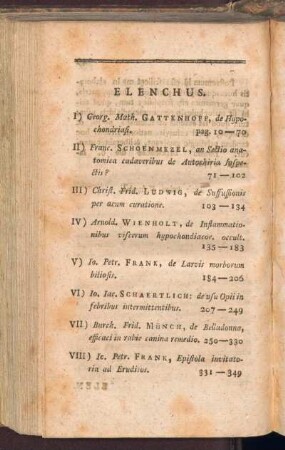 ELENCHUS.
I) Georg. Math. GATTENHOFF, de Hypo-
chondriasi. pag. 10—70
II) Franc. SCHOENMEZEL, an Sectio ana-
tomica cadaveribus de Autochiria suspe-
ctis? 71—102
III) Christ. Frid. LUDWIG, de Suffusionis
per acum curatione. 103—134
IV) Arnold. WIENHOLT, de Inflammatio-
nibus viscerum hypochondriacor. occult.
135—183
V) Io. Petr. FRANK, de Larvis morborum
biliosis. 184—206
VI) Io. Jac. SCHAERTLICH: de usu Opii in
febribus intermittentibus. 207—249
VII) Burch. Frid. MÜNCH, de Belladonna,
efficaci in rabie canina remedio. 250—330
VIII) Io. Petr. FRANK, Epistola invitato-
ria ad Eruditos. 331—349